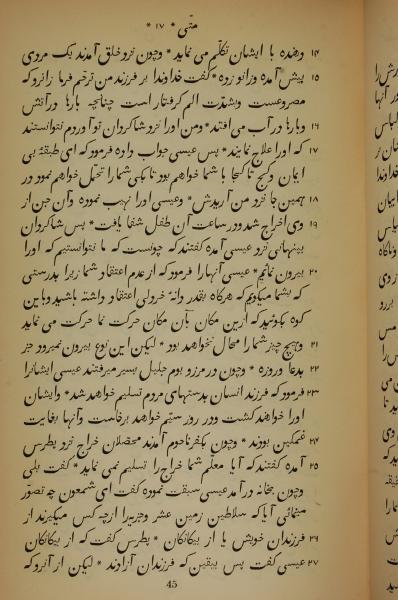 متی * ۱۷ *
۱۴ وعده با ایشان تکلّم می نماید * وچون نزد خلق آمدند یک مردی
۱۵ پیش آمده وزانو زده * گفت خداوندا بر فرزند من ترحم فرما زانرو که
مصروعست وبشدّت الم گرفتار است چنانچه بارها در آتش
۱۶ وبارها در آب می افتد * ومن اورا نزد شاگردان تو آوردم نتوانستند
۱۷ که اورا علاج نمایند * پس عیسی جواب داده فرمود که ای طبقهٔ بی
ایمان وکج تا کجا با شما خواهم بود تا بکی شما را تحمّل خواهم نمود در
۱۸ همین جا نزد من آریدش * وعیسی اورا نهیب نموده وآن جن از
۱۹ وی اخراج شد ودر ساعت آن طفل شفا یافت * پس شاگردان
بپنهانی نزد عیسی آمده گفتند که چونست که ما نتوانستیم که اورا
۲۰ بیرون نمائیم * عیسی آنها را فرمود که از عدم اعتقاد شما زیرا بدرستی
که بشما میگویم که هرگاه بقدر دانهٔ خردلی اعتقاد داشته باشید وباین
کوه بگوئید که ازین مکان بآن مکان حرکت نما حرکت می نماید
۲۱ وهیچ چیز شما را محال نخواهد بود * لیکن این نوع بیرون نمیرود جز
۲۲ بدعا وروزه * وچون در مرز وبوم جلیل بسیر میرفتند عیسی ایشانرا
۲۳ فرمود که فرزند انسان بدستهای مردم تسلیم خواهد شد * وایشان
اورا خواهند کشت ودر روز سیّم خواهد برخاست وآنها بغایت
۲۴ غمگین بودند * وچون بکفرناحوم آمدند محصّلان خراج نزد پطرس
۲۵ آمده گفتند که آیا معلّم شما خراج را تسلیم نمی نماید * گفت بلی
وچون بخانه در آمد عیسی سبقت نموده گفت ای شمعون چه تصوّر
مینمائی آیا که سلاطین زمین عشر وجزیه را از چه کس میگیرند از
۲۶ فرزندان خویش یا از بیگانگان * پطرس گفت که از بیگانگان
۲۷ عیسی گفت پس بیقین که فرزندان آزادند * لیکن از آنرو که
45